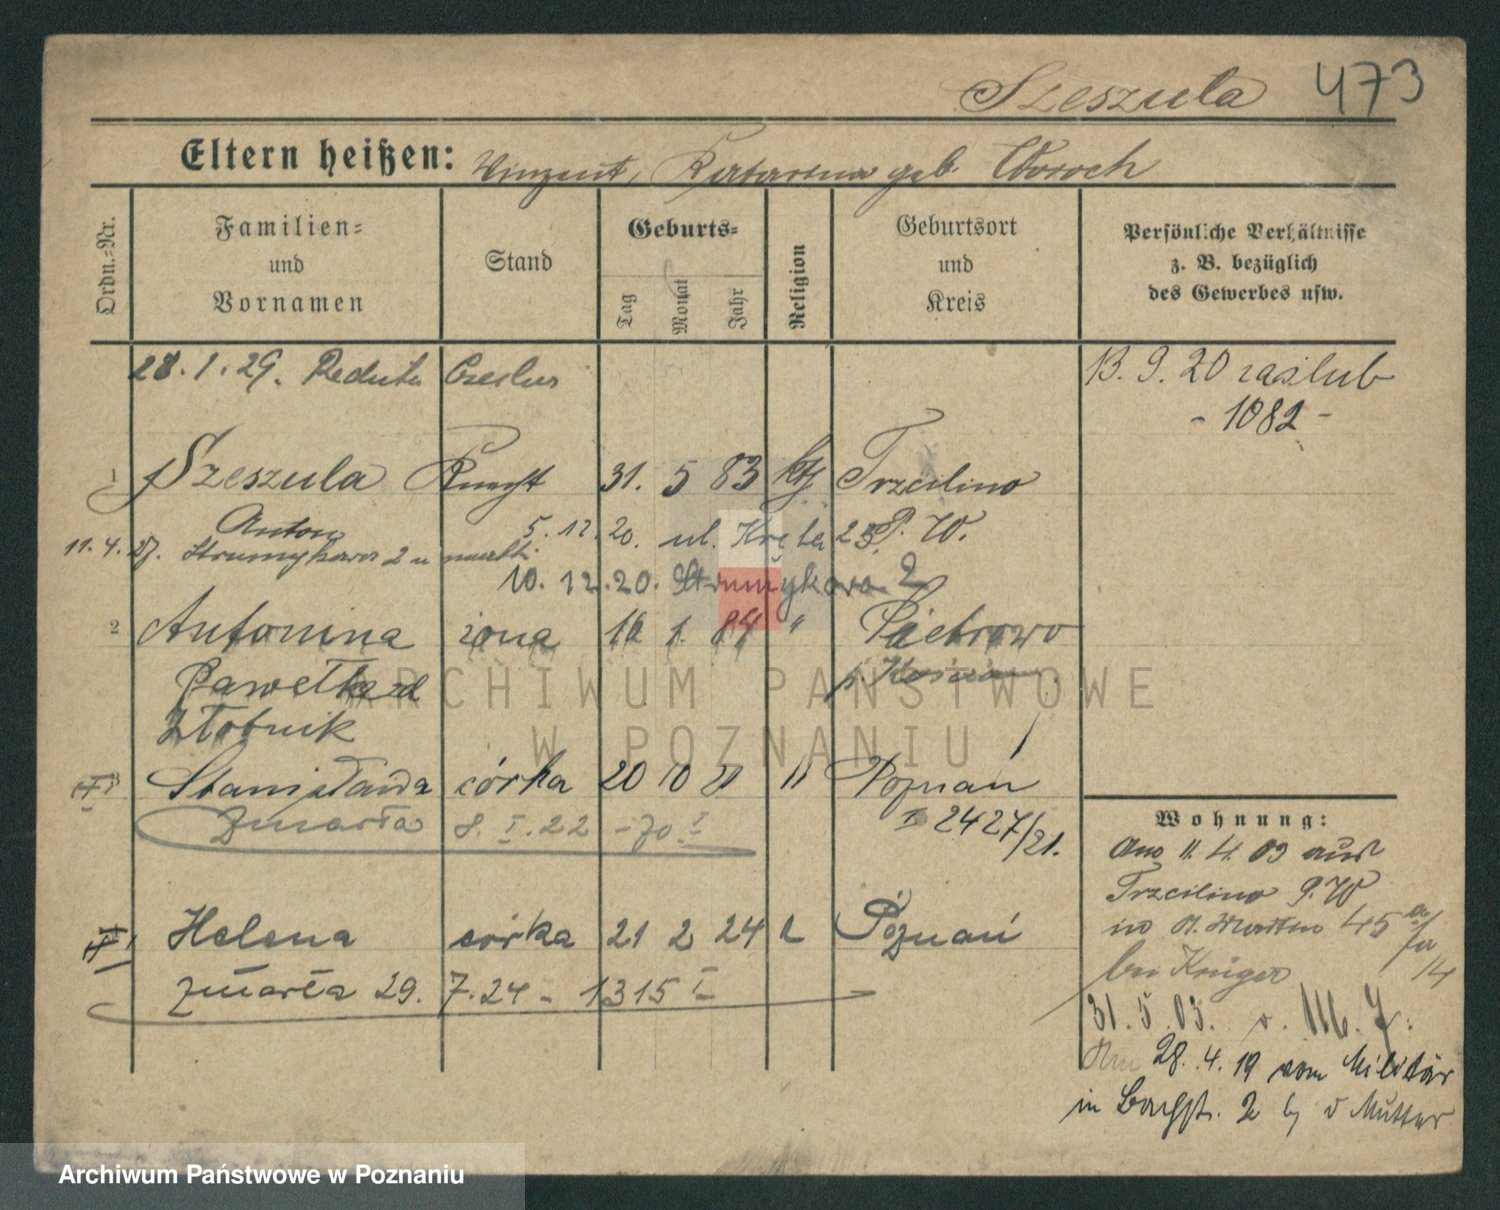 Szeszula 473
Eltern heißen: Vinzent, Katarina geb. Woroch
Ordn.-Nr.
Familien-
und
Vornamen
Stand
Geburts-
Tag
Monat
Jahr
Religion
Geburtsort
und
Kreis
Persönliche Verhältnisse
z. B. bezüglich
des Gewerbes usw.
28.1.29. Reduta
13. 9. 20 zaślub
- 1082 -
1 Szeszula 31. 5 83 kth Trzcilino
Anton 5. 12. 20. ul. Kręta 23 P. W.
11. 4. 27. Strumykowa 2 u
10. 12. 20. Strumykowa 2
2 Antonina żona 16 1. 84 " Pietrowo
Pawełka
Złotnik
3 Stanisława córka 20 10 21 " Poznań
Zmarła 8. I. 22 - 70 I 2427/21.
Helena córka 21 2 24 Poznań
zmarła 29. 7. 24 - 1315 I
Wohnung:
11. 4. 03 aus
Trzcilino P. W
in St. Martin 45 a
bei Krüger 14
31. 5. 03. v.
Am 28. 4. 19 vom Militär
in Bachstr. 2 b v Mutter
ARCHIWUM PAŃSTWOWE
W POZNANIU
Archiwum Państwowe w Poznaniu